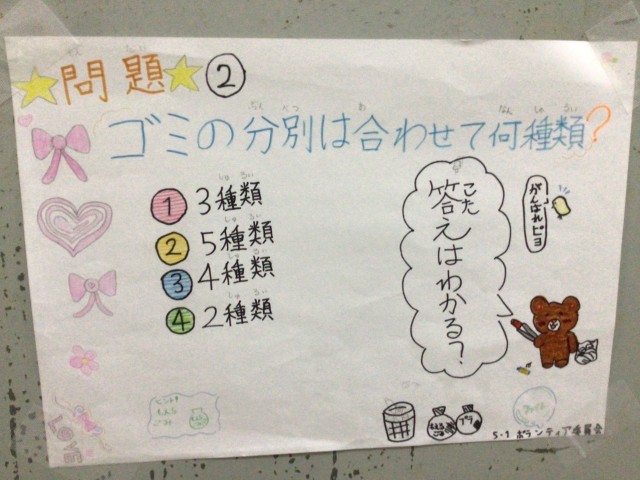 問題②
ゴミの分別は合わせて何種類?
① 3種類
② 5種類
③ 4種類
④ 2種類
答えはわかる?
がんばれピヨ
プラ
5-1 ボランティア委員会
Love